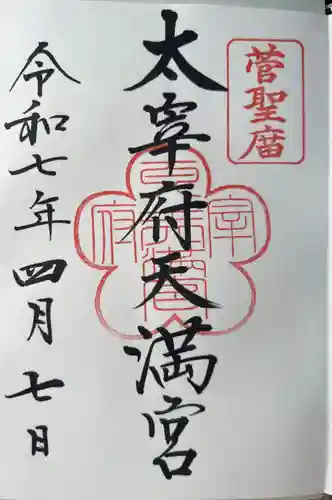 菅聖庿
太宰府天満宮
令和七年四月七日